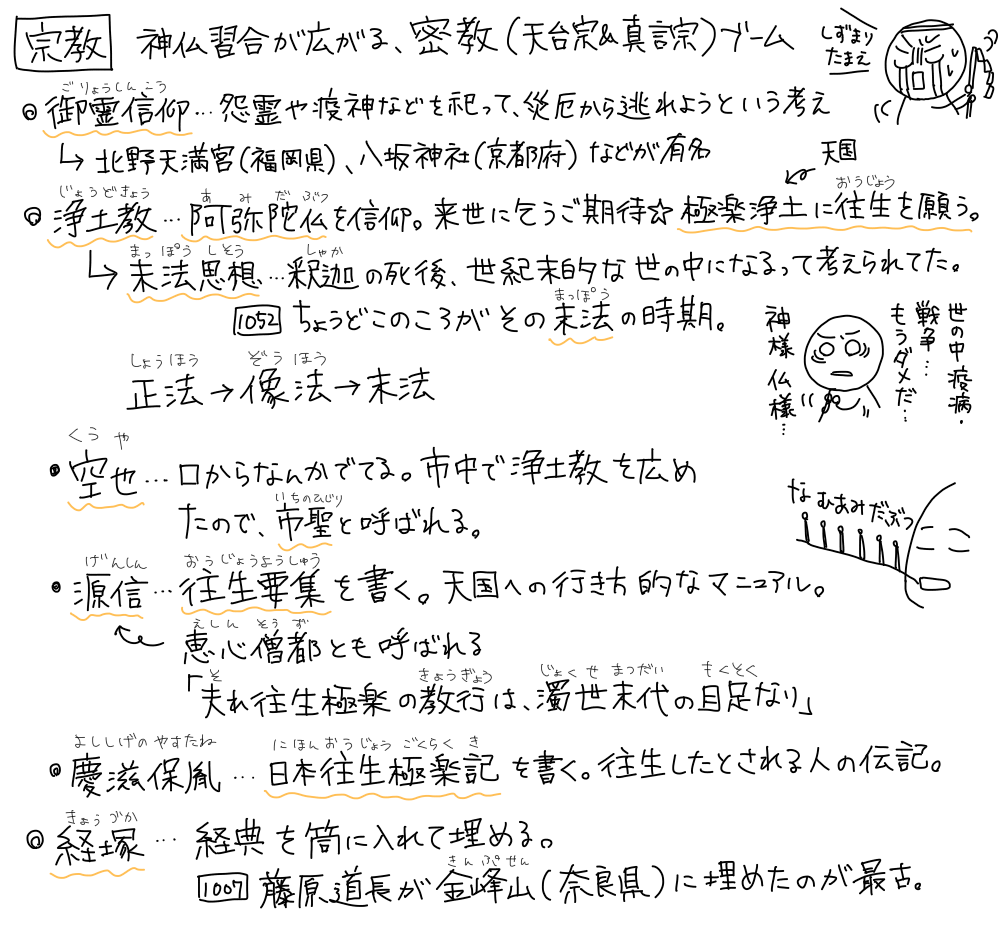 宗教 神仏習合が広がる、密教(天台宗&真言宗)ブーム
しずまり
たまえ
ごりょうしんこう
御霊信仰…怨霊や疫神などを祀って、災厄から逃れようという考え
↳北野天満宮(福岡県)、八坂神社(京都府)などが有名
天国
じょうどきょう あみだぶつ おうじょう
浄土教…阿弥陀仏を信仰。来世に乞うご期待☆極楽浄土に往生を願う。
まっぽうしそう しゃか
↳末法思想…釈迦の死後、世紀末的な世の中になるって考えられてた。
まっぽう
1052 ちょうどこのころがその末法の時期。
世の中疫病・
戦争…
もうダメだ…
神様仏様…
しょうほう ぞうほう
正法→像法→末法
くうや
・空也…口からなんかでてる。市中で浄土教を広め
いちのひじり
たので、市聖と呼ばれる。
なむあみだぶつ
げんしん おうじょうようしゅう
・源信…往生要集を書く。天国への行き方的なマニュアル。
えしんそうず
恵心僧都とも呼ばれる
そ きょうぎょう じょくせまつだい もくそく
「夫れ往生極楽の教行は、濁世末代の目足なり」
よししげのやすたね にほんおうじょうごくらくき
・慶滋保胤…日本往生極楽記を書く。往生したとされる人の伝記。
きょうづか
経塚…経典を筒に入れて埋める。
きんぷせん
1007 藤原道長が金峰山(奈良県)に埋めたのが最古。